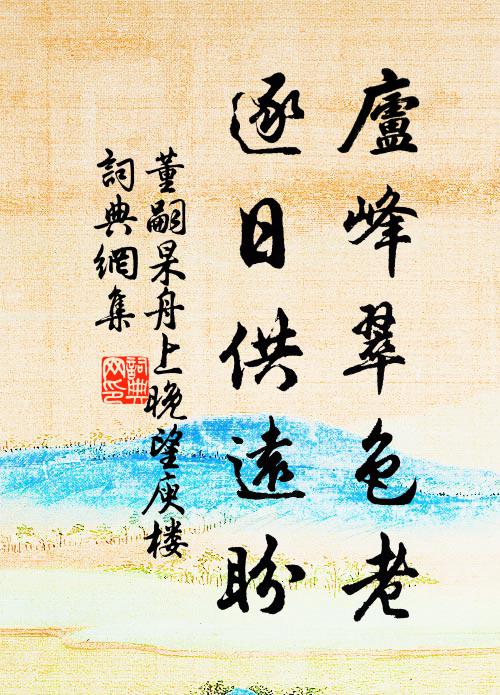 廬峰翠色老
逐日供遠盼
董嗣杲舟上晚望庾楼
詞典網集
詞典
网印